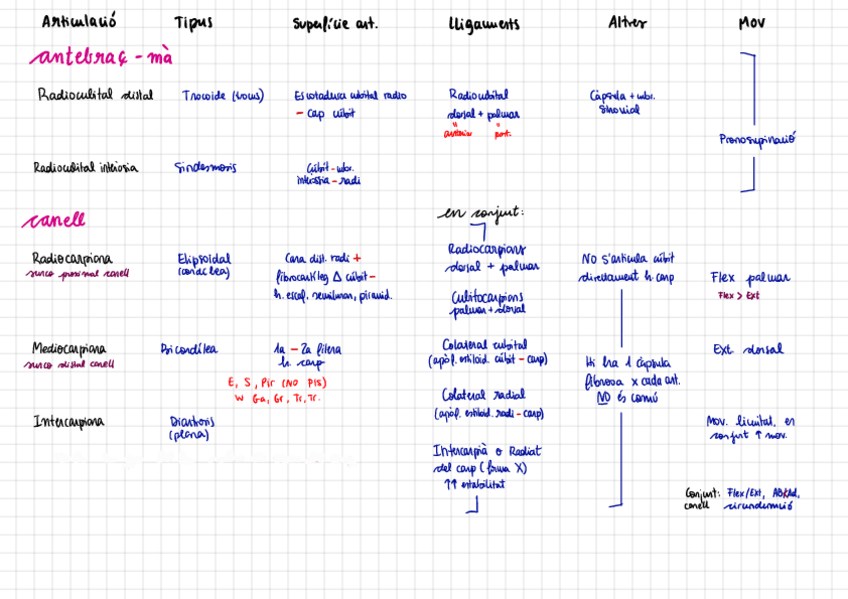 Articulació Tipus Superfície art. Lligaments Altres Mov
antebraç - mà
Radiocubital distal Trocoide (trocus) Escotadura cubital radio Radiocubital Càpsula + mbr.
- cap cúbit dorsal + palmar sinovial
anterior post.
Pronosupinació
Radiocubital interòssia Sindesmosis Cúbit - mbr.
interòssia - radi
canell
en conjunt:
Radiocarpiana Elipsoidal Cara dist. radi + Radiocarpians No s'articula cúbit
surco proximal canell (condílea) fibrocartíleg Δ cúbit - dorsal + palmar directament h. carp Flex palmar
h. escaf, semilunar, piramid. Cubitocarpians Flex > Ext
palmar + dorsal
Mediocarpiana Bicondílea 1a - 2a filera Colateral cubital Ext. dorsal
surco distal canell h. carp (apòf. estiloid. cúbit - carp) Hi ha 1 càpsula
E, S, Pir (NO PIS) fibrosa x cada art.
W Ga, Gr, Tr, Tr. Colateral radial NO és comú
Intercarpiana Diartrosis (apòf. estiloid. radi - carp) Mov. limitat, en
(plana) conjunt ↑ mov.
Intercarpià o Radiat
del carp (forma X)
↑↑ estabilitat
Conjunt: Flex/Ext, AB/Ad,
canell circumducció